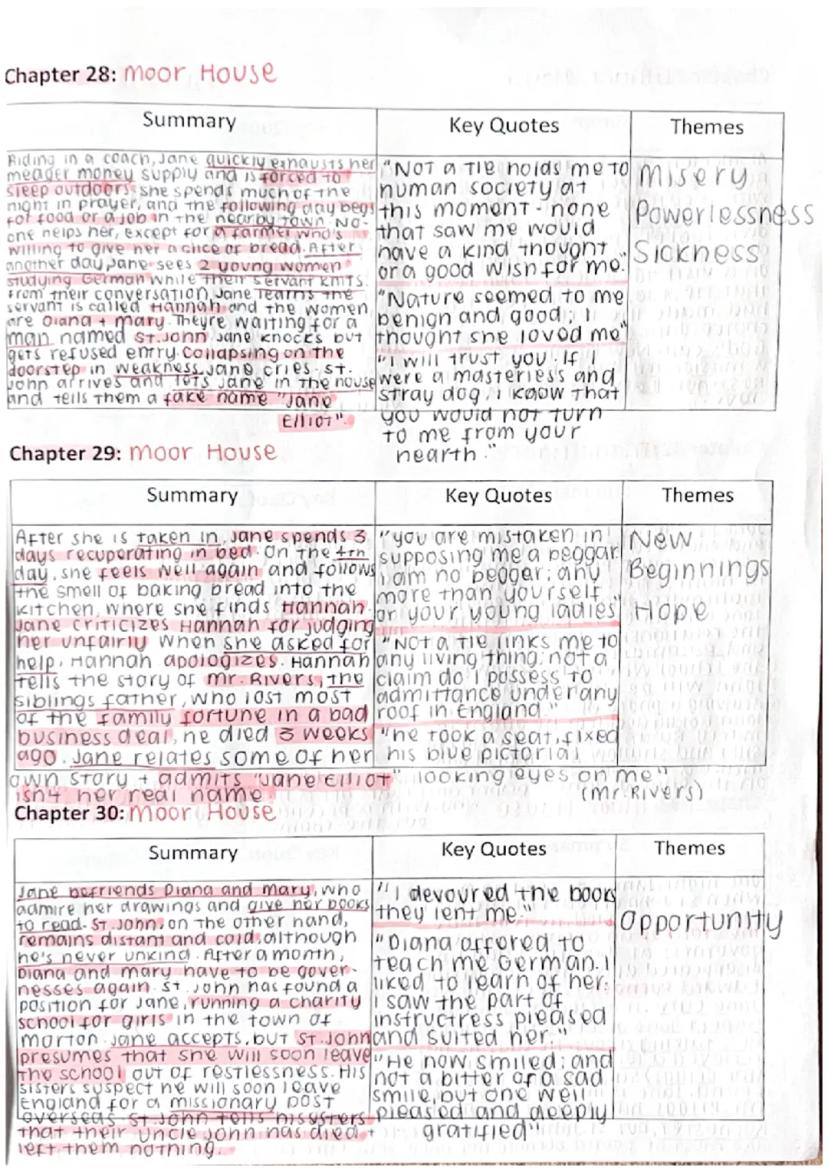 Chapter 28: Moor House
Summary
Riding in a coach, Jane quickly exhausts her
meager money supply and is forced to
sleep outdoors. she spends much of the
night in prayer, and the following day begs
for food or a job in the nearby town. No-
one helps her, except for a farmer who's
willing to give her a slice of bread. After
another day Jane sees 2 young women
studying German while their servant knits.
From their conversation Jane learns the
servant is called Hannah and the women
are Diana + Mary. Theyre waiting for a
man named St. John. Jane knocks but
gets refused entry. Collapsing on the
doorstep in weakness, Jane cries. St.
John arrives and lets Jane in the house
and tells them a fake name "Jane
Elliot".
Key Quotes
"Not a tie holds me to
human society at
this moment - none
that saw me would
have a kind thought
or a good wish for me."
"Nature seemed to me
benign and good; I
thought she loved me"
"I will trust you. If I
were a masterless and
stray dog, I know that
you would not turn
to me from your
hearth."
Themes
Misery
Powerlessness
Sickness
Chapter 29: Moor House
Summary
After she is taken in, Jane spends 3
days recuperating in bed. On the 4th
day, she feels well again and follows
the smell of baking bread into the
kitchen, where she finds Hannah.
Jane criticizes Hannah for judging
her unfairly when she asked for
help, Hannah apologizes. Hannah
tells the story of Mr. Rivers, the
siblings father, who lost most
of the family fortune in a bad
business deal, he died 3 weeks
ago. Jane relates some of her
own story + admits "Jane Elliot"
isn't her real name
Key Quotes
"you are mistaken in
supposing me a beggar
I am no beggar; any
more than yourself
or your young ladies"
"Not a tie links me to
any living thing: not a
claim do I possess to
admittance under any
roof in England"
"he took a seat, fixed
his blue pictorial
looking eyes on me"
(Mr. Rivers)
Themes
New
Beginnings
Hope
Chapter 30: Moor House
Summary
Jane befriends Diana and Mary, who
admire her drawings and give her books
to read. St. John, on the other hand,
remains distant and cold, although
he's never unkind. After a month,
Diana and Mary have to be gover-
nesses again. St. John has found a
position for Jane, running a charity
school for girls in the town of
Morton. Jane accepts, but St. John
presumes that she will soon leave
the school out of restlessness. His
sisters suspect he will soon leave
England for a missionary post
overseas. St. John tells his sisters
that their Uncle John has died +
left them nothing.
Key Quotes
"I devoured the books
they lent me."
"Diana affored to
teach me German. I
liked to learn of her:
I saw the part of
instructress pleased
and suited her."
"He now smiled: and
not a bitter or a sad
smile, but one well
pleased and deeply
gratified"
Themes
Opportunity